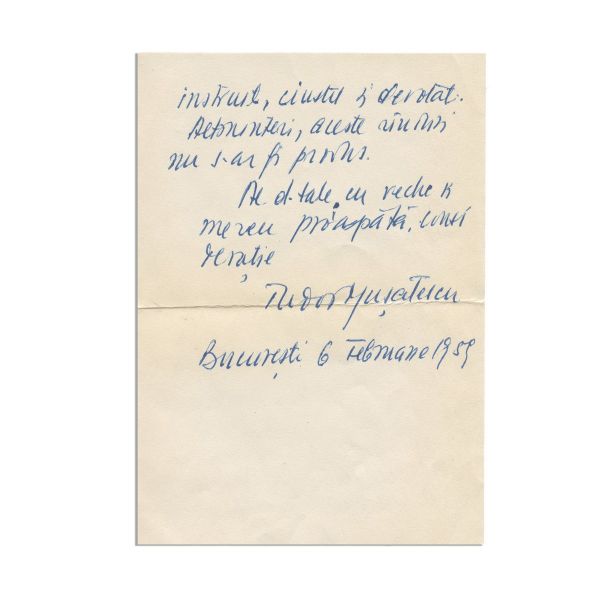 instruit, cinstit și devotat.
Altminteri, aceste rînduri
nu s-ar fi produs.
Al d-tale, cu veche și
mereu proaspătă, consi
derație
Tudor Mușatescu
București 6 Februarie 1959